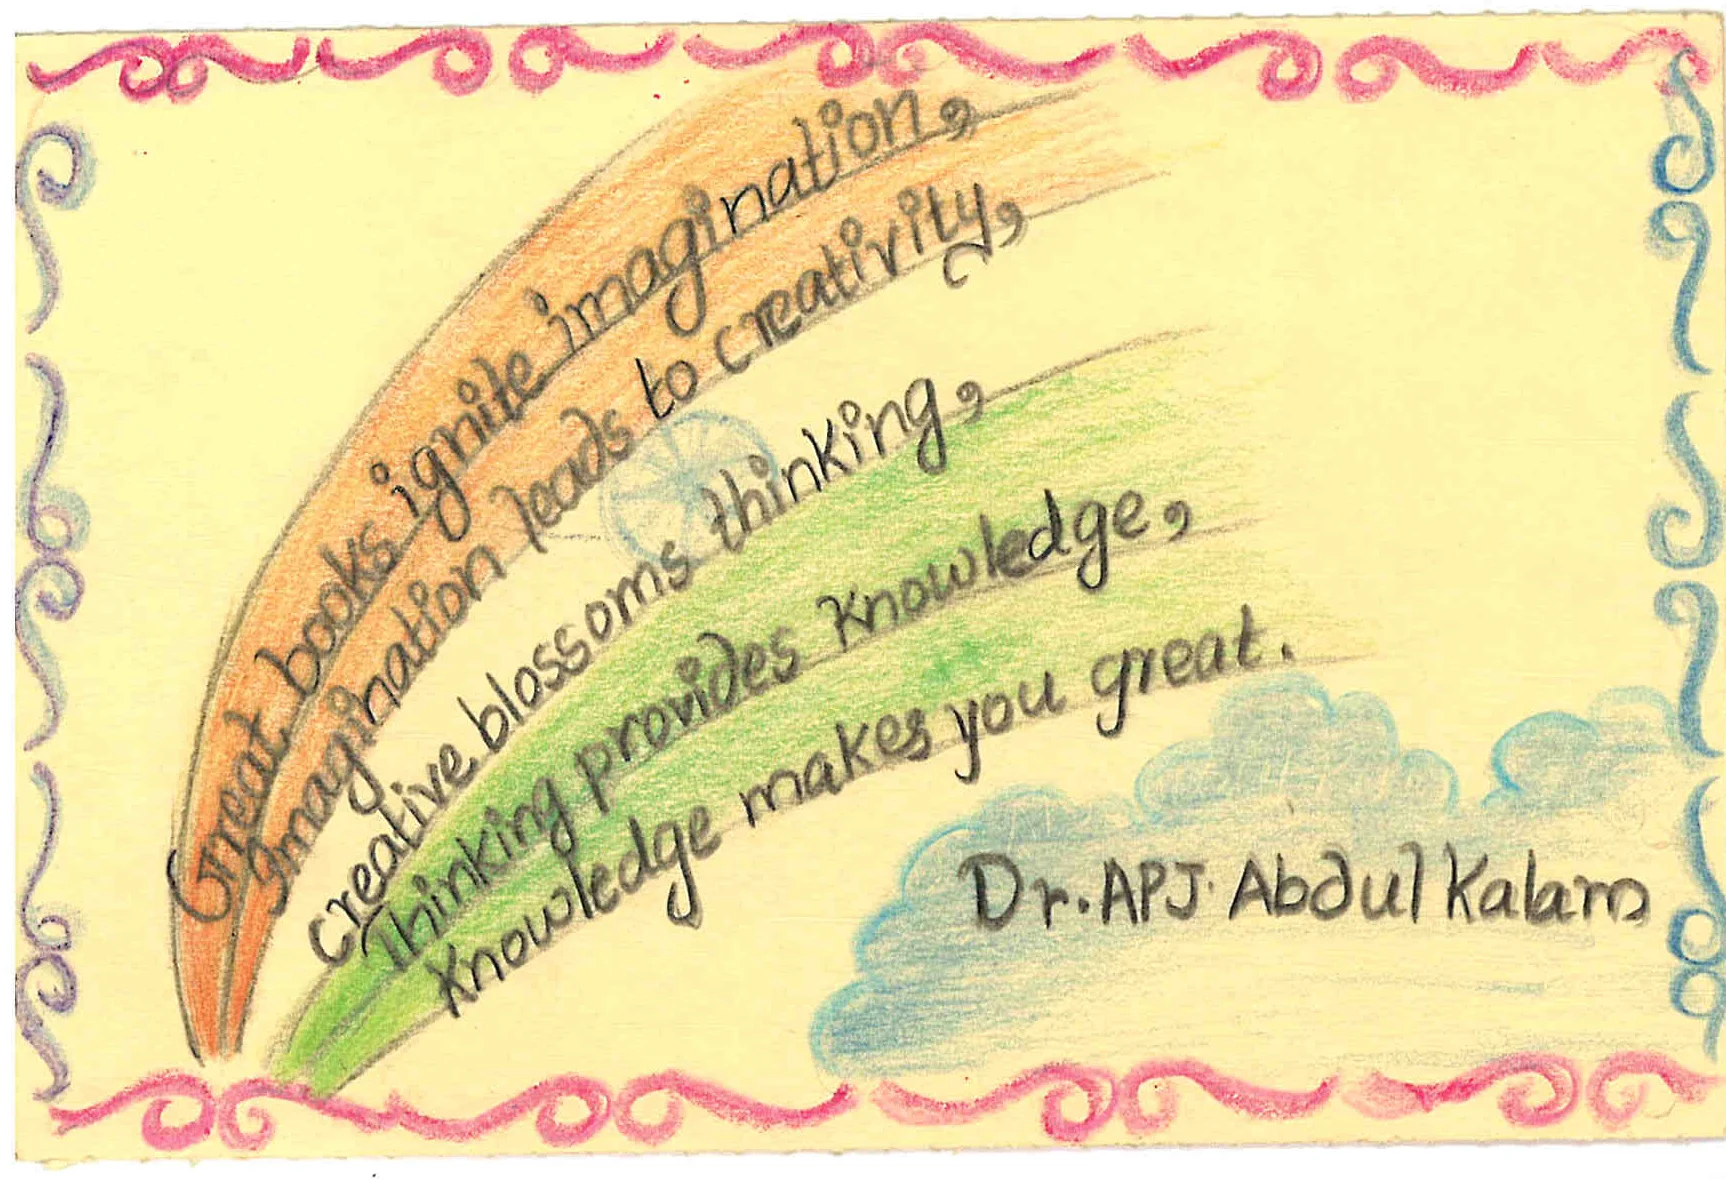 Great books ignite imagination,
Imagination leads to creativity,
Creative blossoms thinking,
Thinking provides knowledge,
Knowledge makes you great.
Dr. APJ. Abdul Kalam